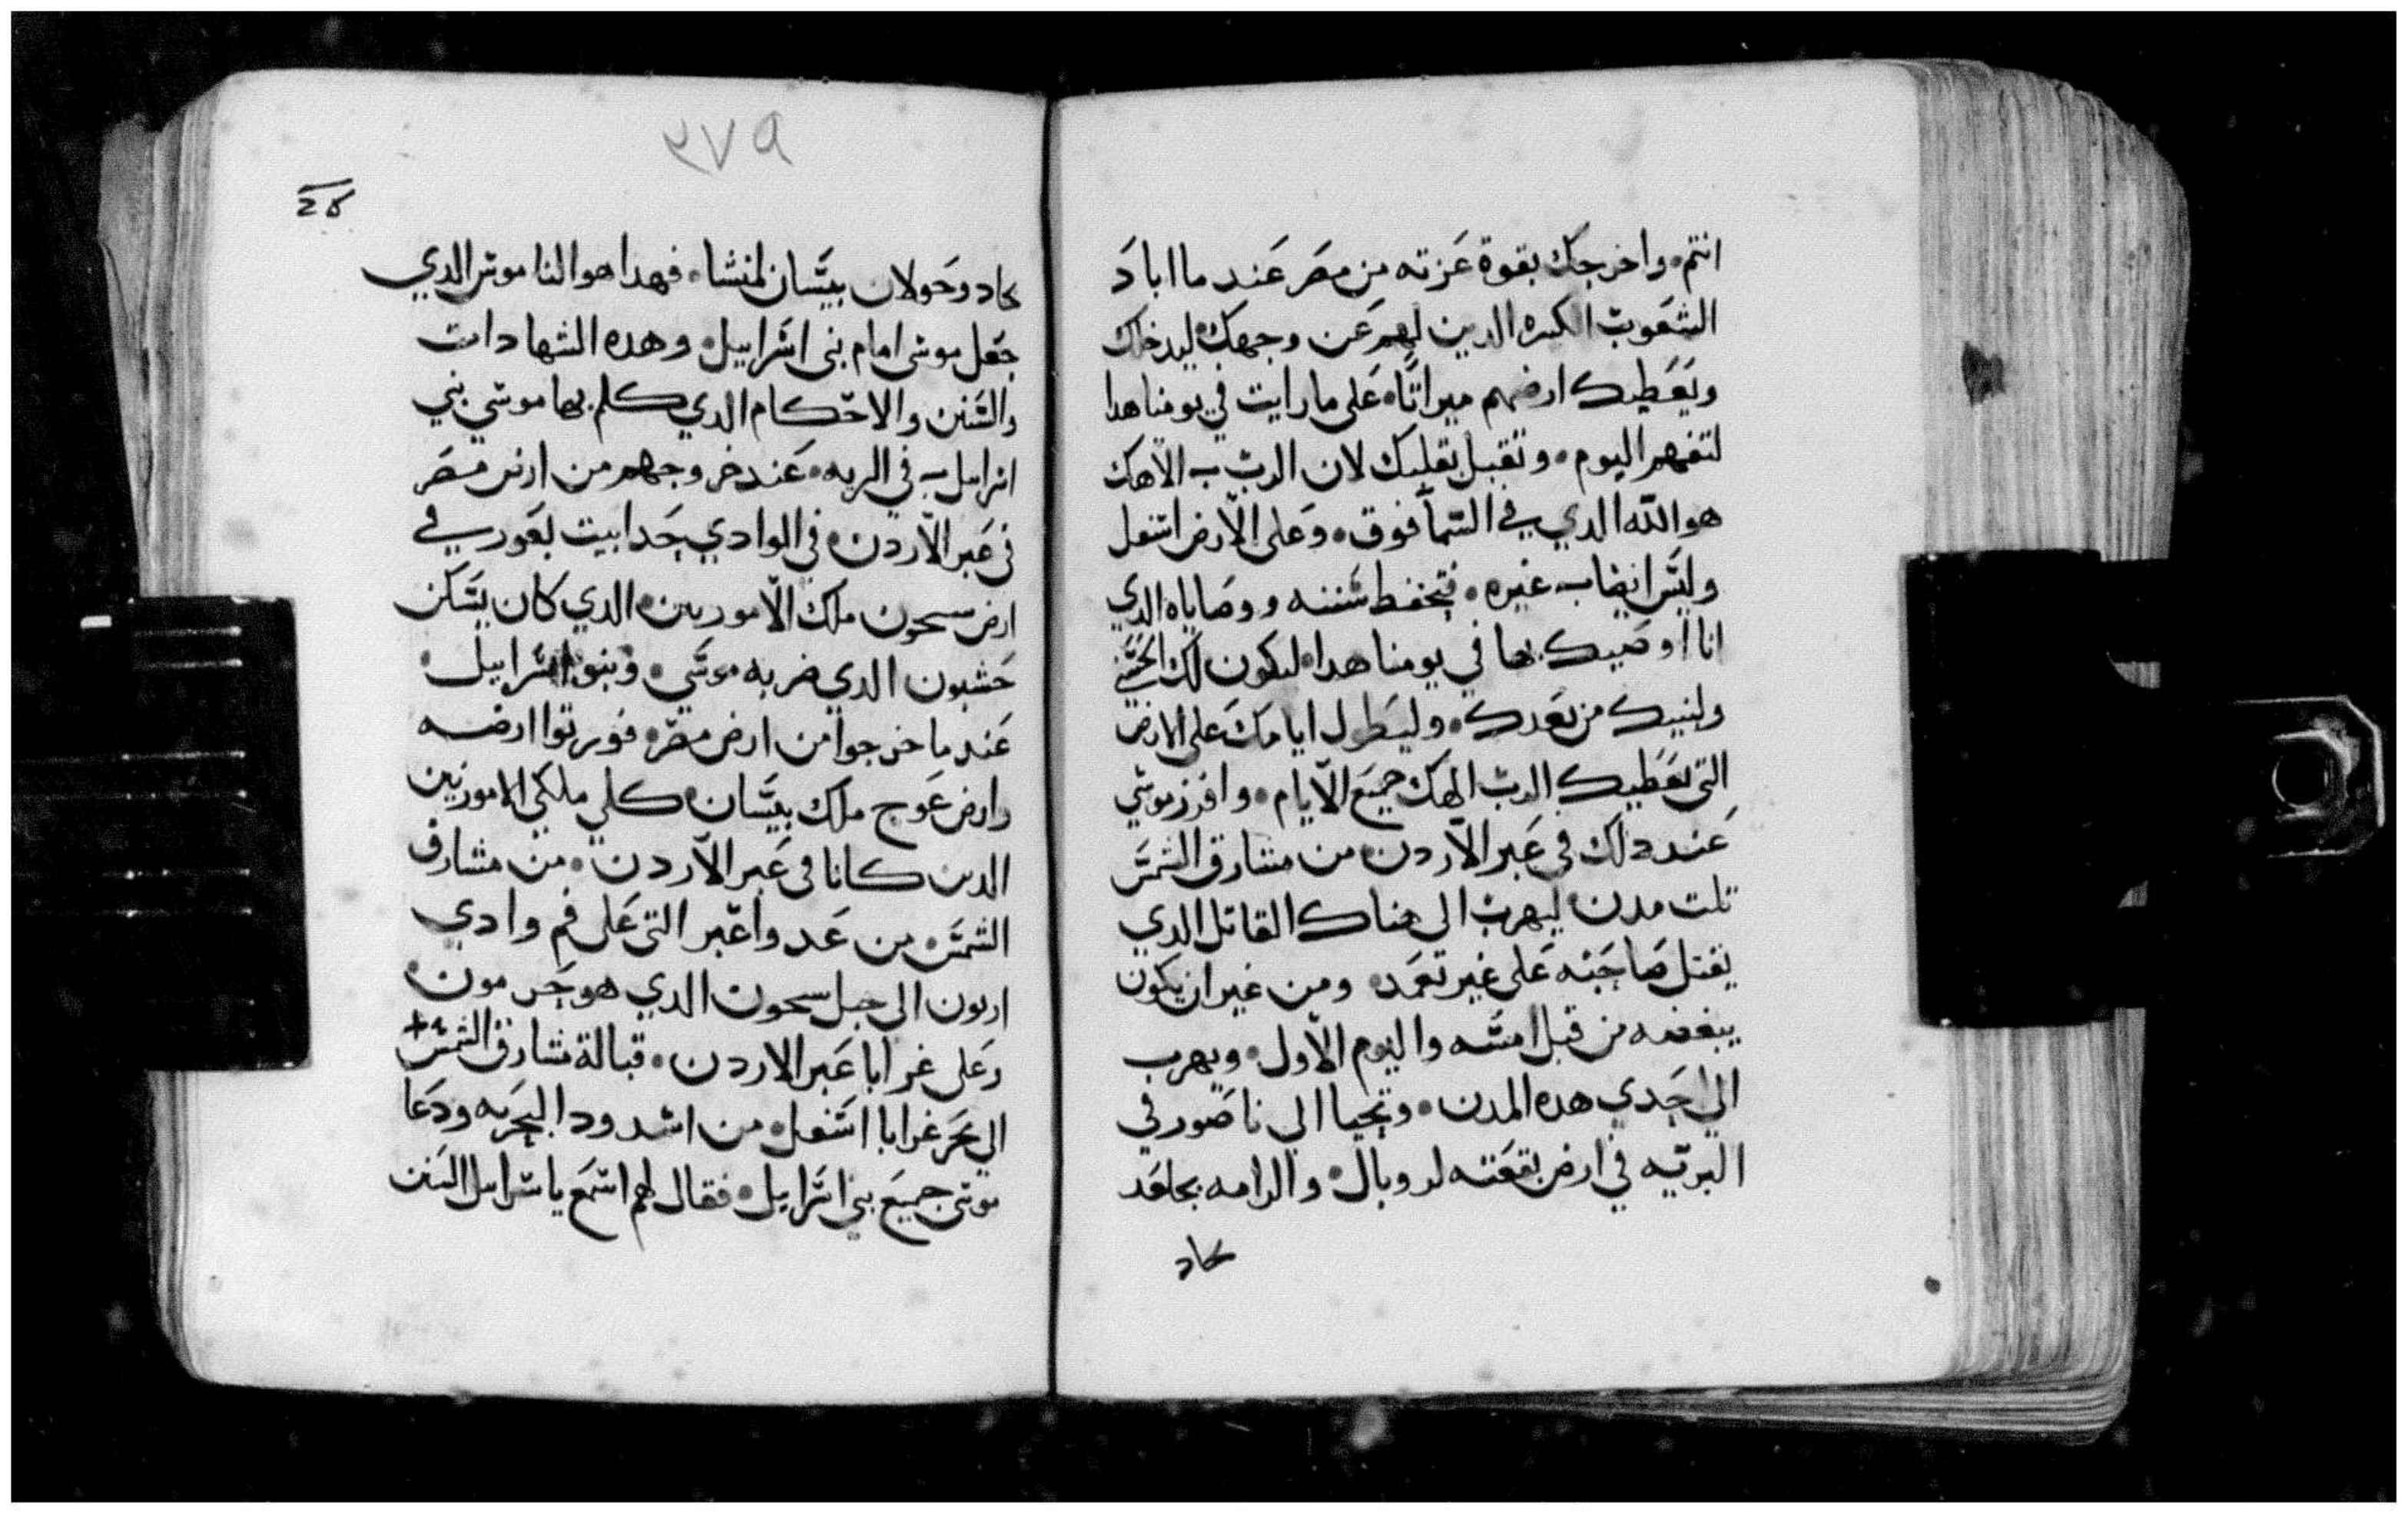 انتم. واخرجك بقوة عزته من مصر عند ما اباد
الشعوب الكبيره الدين لهم عن وجهك ليدخلك
ويعطيك ارضهم ميراتاً. على ما رايت في يومنا هدا
لتفهم اليوم. وتقبل بقلبك لان الرب الاهك
هو الله الدي في السما فوق. وعلى الارض اسفل
وليس ايضاً غيره. فتحفط سننه ووصاياه الدي
انا اوصيك بها في يومنا هدا. ليكون لك الحسني
ولبنيك من بعدك. وليطول ايامك على الارض
التي يعطيك الرب الهك جميع الايام. وافرز موسي
عند دلك في عبر الاردن من مشارق الشمس
تلت مدن. ليهرب الى هناك القاتل الدي
يقتل صاحبه على غير تعمد. ومن غير ان يكون
يبغضه من قبل امسه واليوم الاول. ويهرب
الى احدي هده المدن. ويحيا الي ناصور في
البريه في ارض بقعته لروبال. والرامه بجلعد
كاد
٢٧٩
كاد وحولان بيسان لمنشا. فهدا هو الناموس الدي
جعل موسى امام بني اسراييل. وهده الشهادات
والسنن والاحكام الدي كلم بها موسي بني
اسراييل في البريه. عند خروجهم من ارض مصر
في عبر الاردن. في الوادي حدا بيت بعور في
ارض سحون ملك الامورين. الدي كان يسكن
حشبون الدي ضربه موسي. وبنو اسراييل.
عند ما خرجوا من ارض مصر. فورتوا ارضه
وارض عوج ملك بيسان كلي ملكي الامورين
الدين كانا في عبر الاردن. من مشارق
الشمس. من عدواعير التي على فم وادي
اربون الى جبل سحون الدي هو حرمون.
وعلى غرابا عبر الاردن. قبالة مشارق الشمس
الي بحر غرابا اسفل. من اشدود البحريه ودعا
موسى جميع بني اسراييل. فقال لهم اسمع ياسراييل السنن